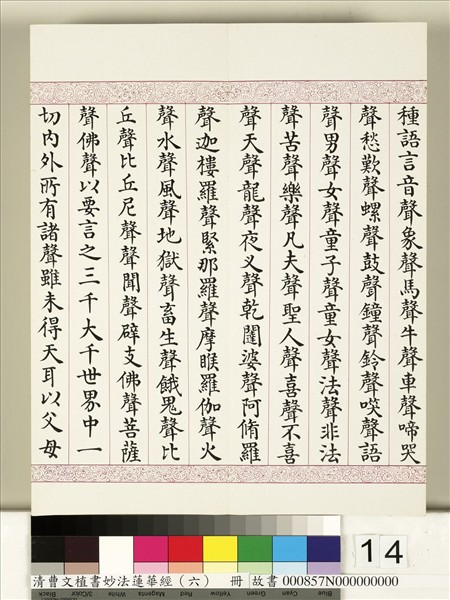 種語言音聲象聲馬聲牛聲車聲啼哭
聲愁歎聲螺聲鼓聲鐘聲鈴聲咲聲語
聲男聲女聲童子聲童女聲法聲非法
聲苦聲樂聲凡夫聲聖人聲喜聲不喜
聲天聲龍聲夜叉聲乾闥婆聲阿脩羅
聲迦樓羅聲緊那羅聲摩睺羅伽聲火
聲水聲風聲地獄聲畜生聲餓鬼聲比
丘聲比丘尼聲聲聞聲辟支佛聲菩薩
聲佛聲以要言之三千大千世界中一
切內外所有諸聲雖未得天耳以父母
14
清曹文植書妙法蓮華經（六） 冊 故書 000857N000000000
Black 3/Color White Magenta Red Yellow Green Cyan Blue